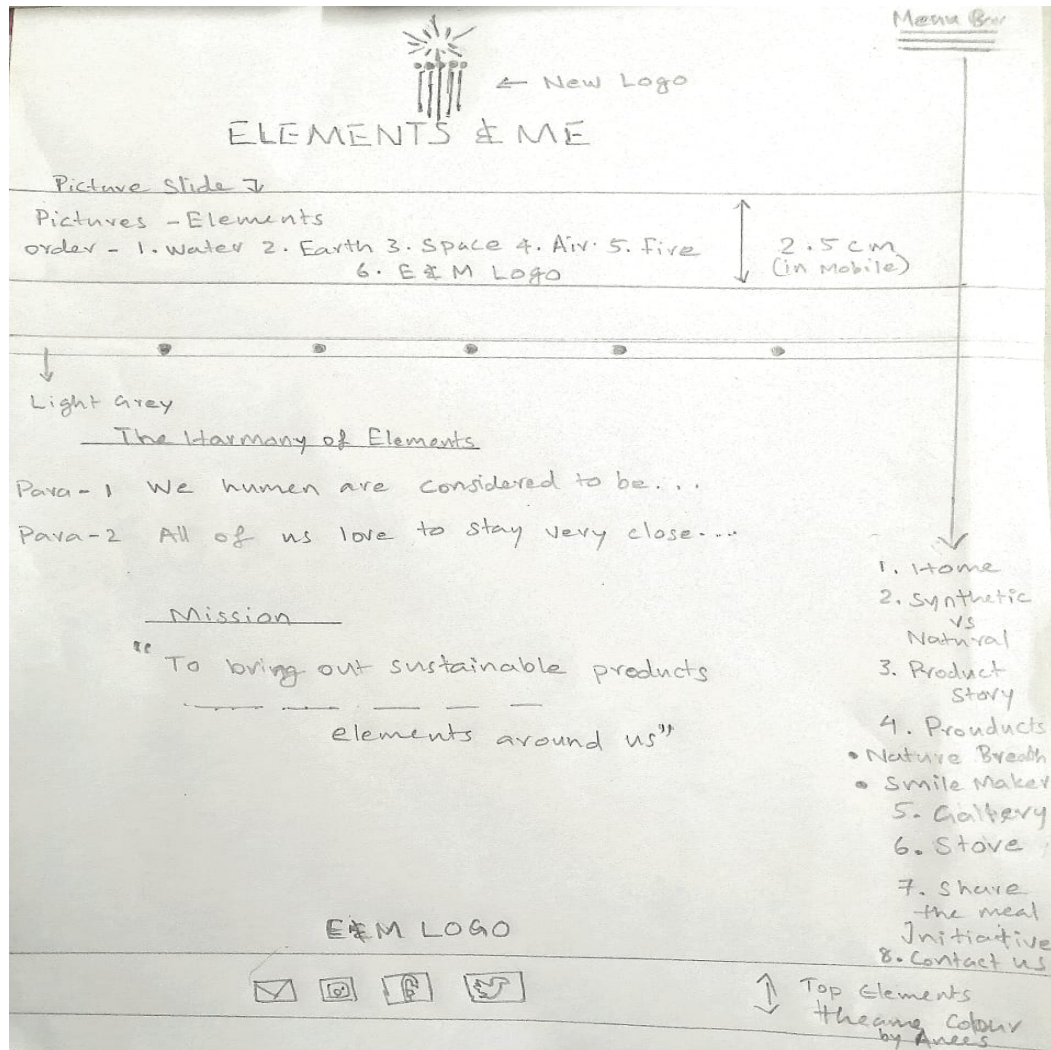 Menu Bar
← New Logo
ELEMENTS & ME
Picture Slide ↓
Pictures - Elements
order - 1. Water 2. Earth 3. Space 4. Air. 5. Fire
6. E&M Logo
2.5 cm
(in Mobile)
Light Grey
The Harmony of Elements
Para-1 We humen are considered to be...
Para-2 All of us love to stay very close....
Mission
"To bring out sustainable products
elements around us"
1. Home
2. Synthetic
vs
Natural
3. Product
Story
4. Prouducts
• Nature Breath
• Smile Maker
5. Gallery
6. Store
7. Share
the meal
Initiative
8. Contact us
E&M LOGO
Top Elements
theame Colour
by Anees